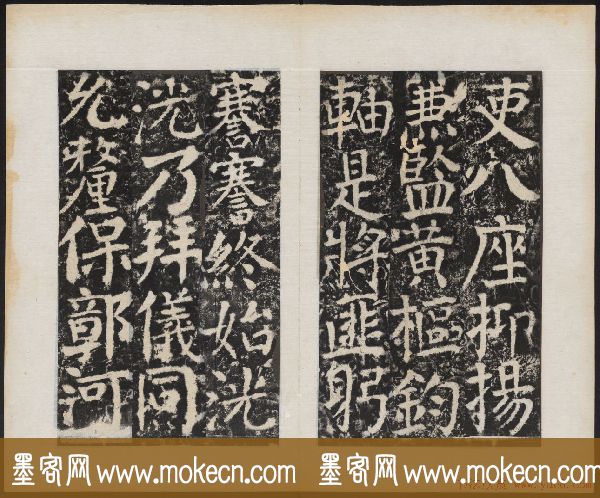 吏八座抑揚
兼監黃樞鈞
軸是將匪躬
謇謇終始洸
洸乃拜儀同
允釐保鄣河
墨客网 www.mokecn.com 墨客网 www.mokecn.com